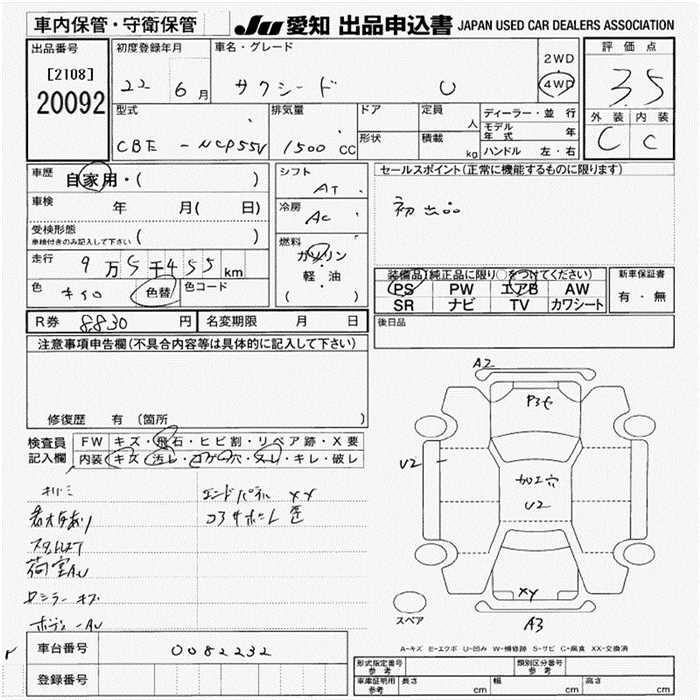 車内保管・守衛保管
JU 愛知 出品申込書 JAPAN USED CAR DEALERS ASSOCIATION
出品番号
[2108]
20092
初度登録年月
22 6月
車名・グレード
サクシード U
2WD
4WD
評価点
3.5
外装 内装
C C
型式
CBE - NCP55V
排気量
1500 CC
ドア
形状
定員
人
積載
kg
ディーラー・並行
モデル年式 年
ハンドル 左・右
車歴
自家用・( )
車検
年 月( 日)
受検形態
車検付きのみ記入して下さい ( )
走行
9万5千455km
色
色替
色コード
シフト
AT
冷房
AC
燃料
ガソリン
・
軽・油
( )
セールスポイント(正常に機能するものに限ります)
初出品
装備品(純正品に限り○をつけてください)
PS PW エアB AW
SR ナビ TV カワシート
新車保証書
有・無
R券 8830 円
名変期限 月 日
後日品
注意事項申告欄(不具合内容等は具体的に記入して下さい)
修復歴 有 (箇所 )
検査員
記入欄
FW キズ・飛石・ヒビ割・リペア跡・X要
内装 キズ・汚レ・コゲ穴・スレ・キレ・破レ
エンドパネル XX
コアサポート
荷室AU
キズ
A2
U2
加工穴
U2
XY
A3
スペア
A-キズ E-エクボ U-凹み W-補修跡 S-サビ C-腐食 XX-交換済
車台番号
0082232
登録番号
形式指定番号
参考
類別区分番号
参考
車庫証明用
参考
長さ cm
幅 cm
高さ cm